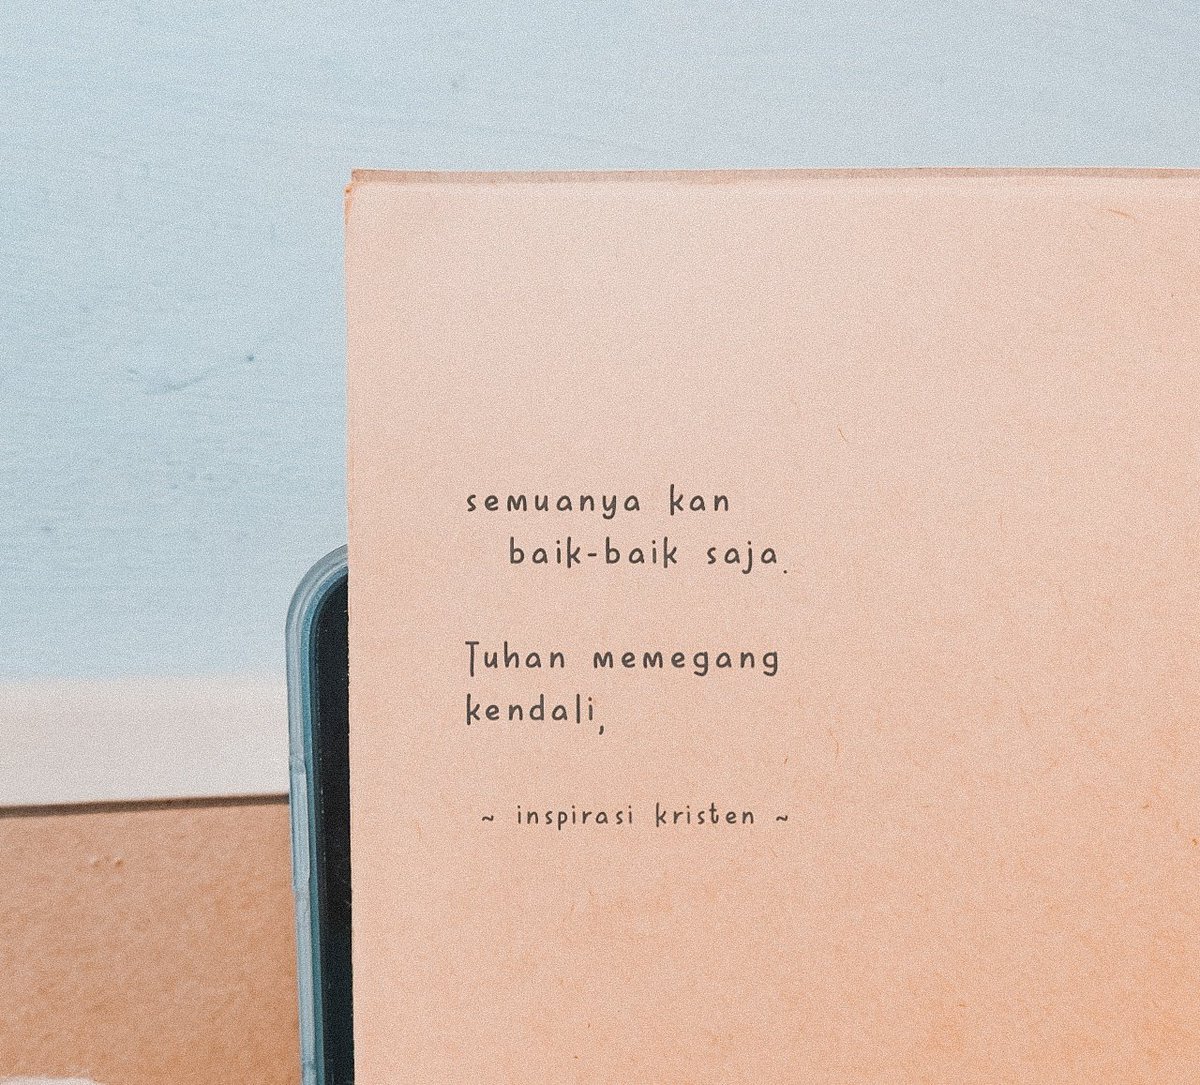 semuanya kan
baik-baik saja.
Tuhan memegang
kendali,
~ inspirasi kristen ~